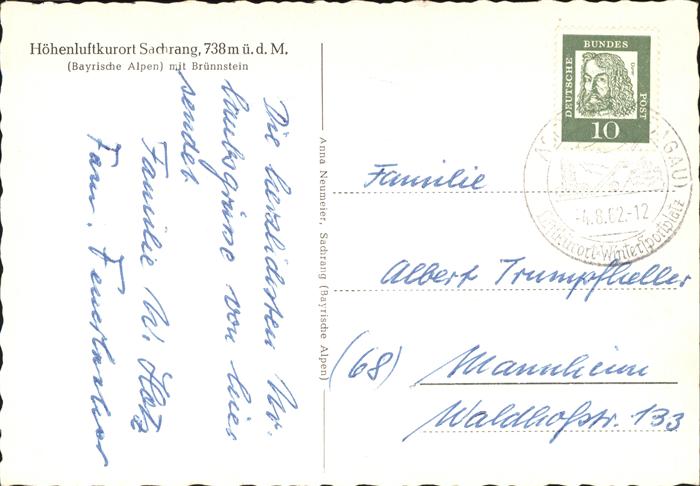 Höhenluftkurort Sachrang, 738 m ü. d. M.
(Bayrische Alpen) mit Brünnstein
Die herzlichsten Ur-
laubsgrüsse von hier
sendet
Familie W. Hotz
Fam.
Anna Neumeier, Sachrang (Bayrische Alpen)
DEUTSCHE
BUNDES
POST
10
-4.8.62.-12
Luftkurort-Wintersportplatz
Familie
Albert Trumpfheller
(68) Mannheim
Waldhofstr. 133